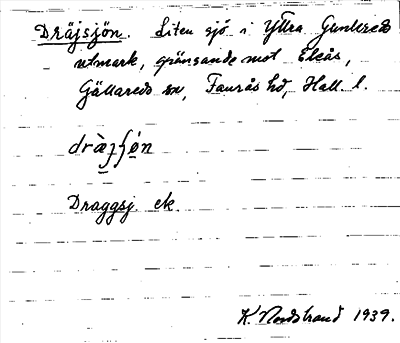 Dräjsjön. Liten sjö i Yttra Gunnareds
utmark, gränsande mot Ekås,
Gällareds sn, Faurås hd, Hall. l.
dràȷʃön
Draggsj. ek.
K. Nordstrand 1939.